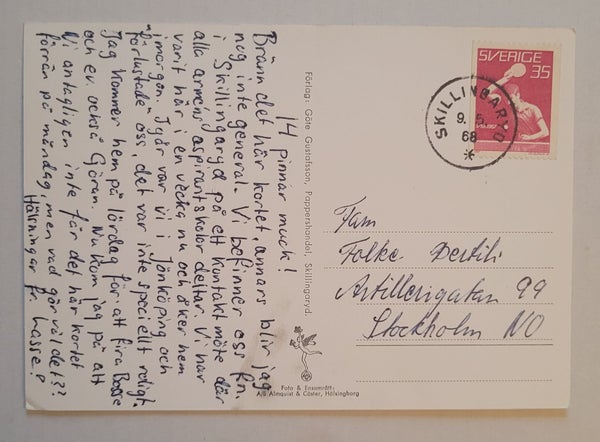 14 pinnar muck!
Bränn det här kortet, annars blir jag
nog inte general. Vi befinner oss f.n.
i Skillingaryd på ett kontaktmöte där
alla armens aspirantskolor deltar. Vi har
varit här i en vecka nu och åker hem
imorgon. Igår var vi i Jönköping och
"förlustade" oss, det var inte speciellt roligt.
Jag kommer hem på lördag för att fira Bosse
och ev. också Göran. Nu kom jag på att
Ni antagligen inte får det här kortet
förrän på måndag, men vad gör väl det??
Hälsningar fr. Lasse!
Förlag: Göte Gustafsson, Pappershandel, Skillingaryd.
Foto & Ensamrätt:
A/B Almquist & Cöster, Hälsingborg
SVERIGE
35
SKILLINGARYD
9. 5.
68
Fam
Folke Bertils
Artillerigatan 99
Stockholm NO